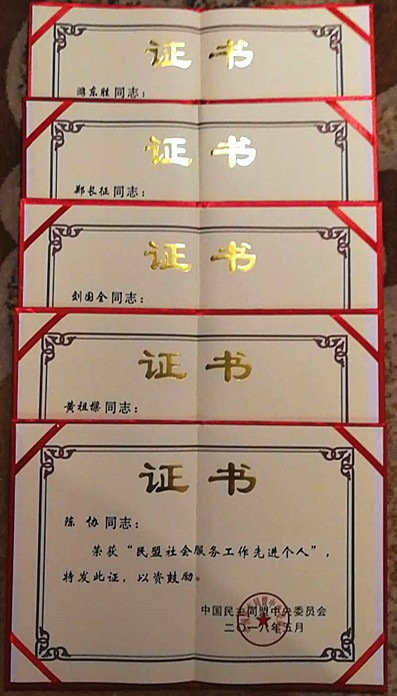 证书
游东胜同志：
证书
郑长征同志：
证书
刘国全同志：
证书
黄祖檬同志：
证书
陈 协同志：
荣获“民盟社会服务工作先进个人”，
特发此证，以资鼓励。
中国民主同盟中央委员会
二〇一八年五月